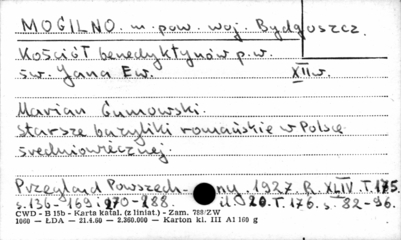 MOGILNO. m. pow. woj. Bydgoszcz.
Kościół benedyktynów p.w.
św. Jana Ew. XII w.
Marian Gumowski.
Starsze bazyliki romańskie w Polsce
średniowiecznej.
Przegląd Powszechny. 1927. R. XLIV. T. 175.
s. 136-169 i 270-288. il. 20. T. 176. s. 82-96.
CWD - B 15b - Karta katal. (z liniat.) - Zam. 788/ZW
1000 — ŁDA — 21.4.60 — 2.360.000 — Karton kl. III A1 160 g